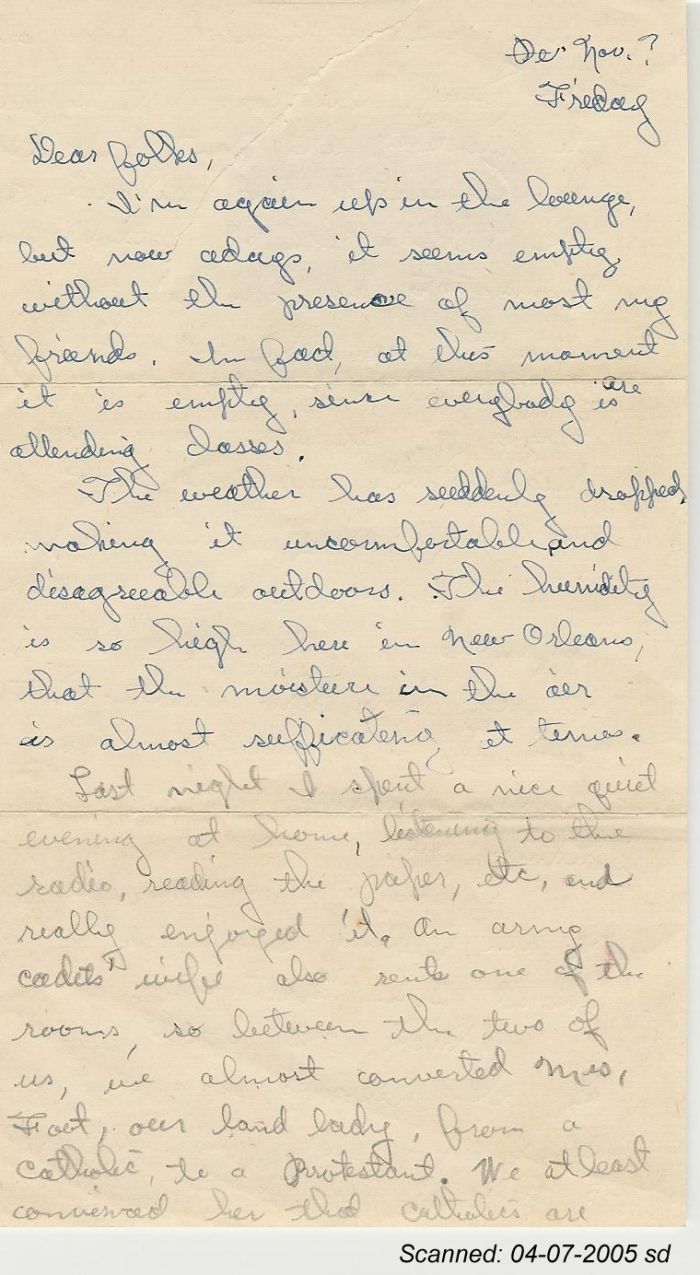 De Nov.?
Friday
Dear folks,
I'm again up in the lounge,
but now adays, it seems empty
without the presence of most my
friends. In fact, at this moment
it is empty, since everybody is are
attending classes.
The weather has suddenly dropped,
making it uncomfortable and
disagreeable outdoors. The humidity
is so high here in New Orleans,
that the moisture in the air
is almost sufficating at times.
Last night I spent a nice quiet
evening at home, listening to the
radio, reading the paper, etc, and
really enjoyed it. An army
cadets' wife also rents one of the
rooms, so between the two of
us, we almost converted Mrs,
our land lady, from a
Catholic, to a Protestant. We at least
convinced her that catholics are
Scanned: 04-07-2005 sd